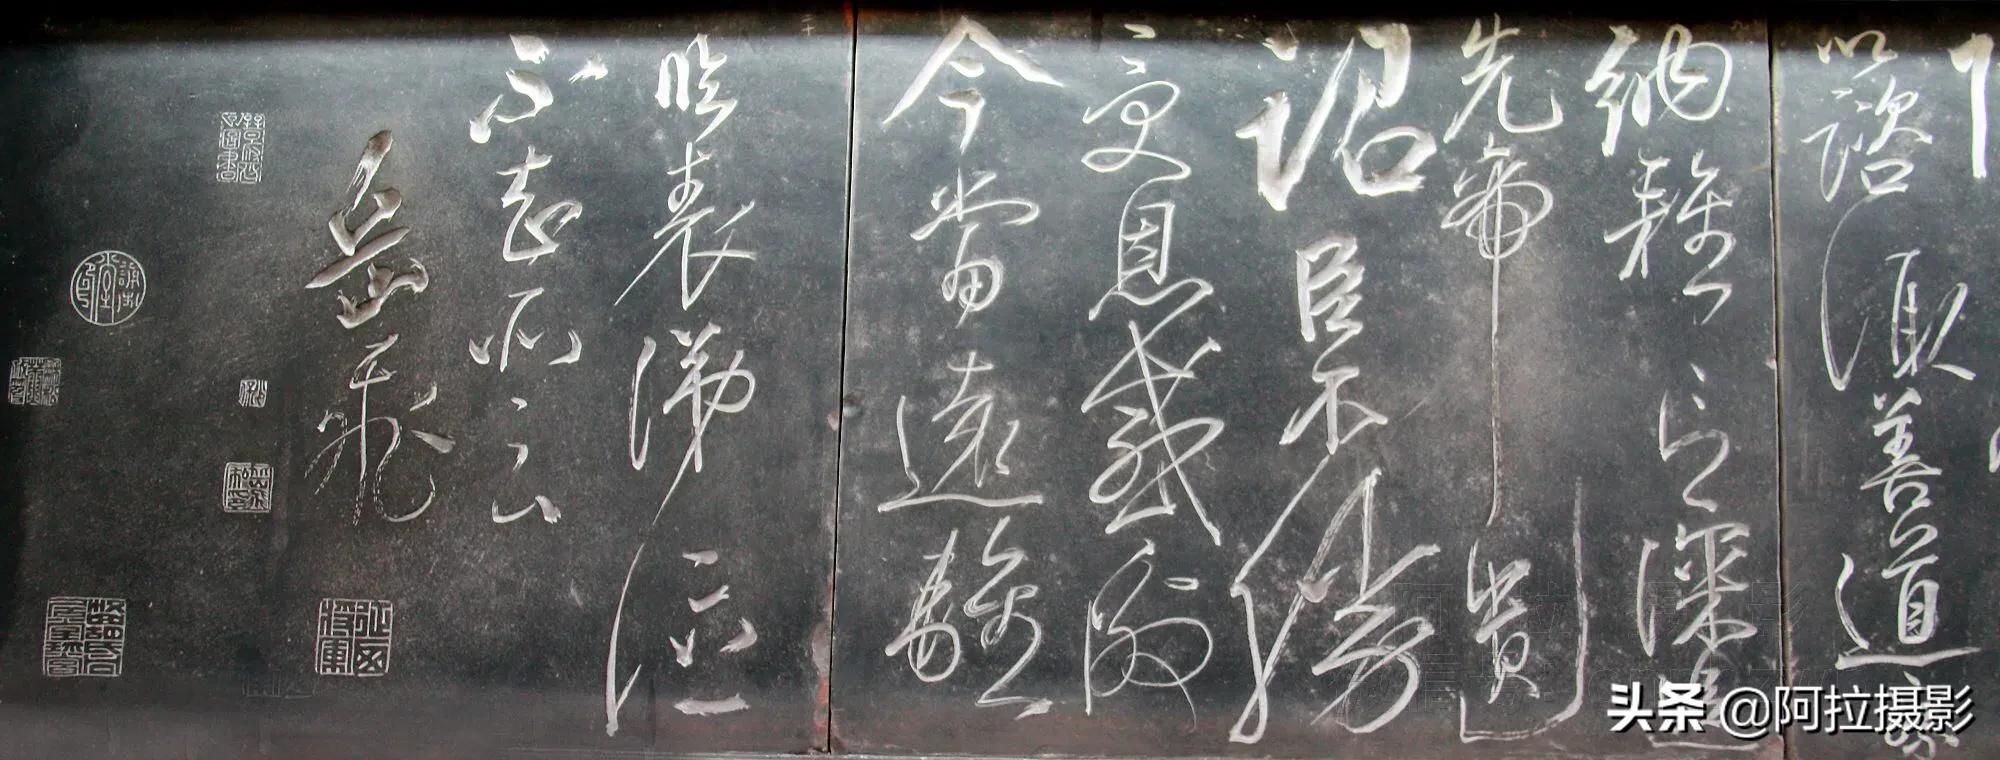 以諮諏善道察
納雅言深追
先帝遺
詔臣不勝
受恩感激
今當遠離
臨表涕泣
不知所云
岳飛
头条 @阿拉摄影